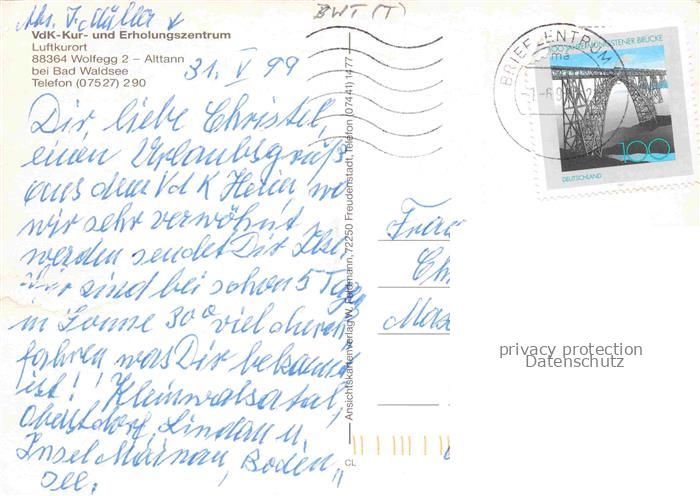 Abs. I. Müller
BWT (T)
VdK-Kur- und Erholungszentrum
Luftkurort
88364 Wolfegg 2 - Alttann
bei Bad Waldsee
Telefon (07527) 290
31. V 99
Dir, liebe Christel,
einen Urlaubsgruß
aus dem VdK Heim, wo
wir sehr verwöhnt
werden sendet Dir Ilse.
Wir sind bei schon 5 Tage
in Sonne 30° viel
fahren was Dir bekannt
ist! Kleinwalsatal,
Oberstdorf, Lindau u.
Insel Mainau, Boden
see.
Ansichtskartenverlag W. 72250 Freudenstadt, Telefon (07441) 1477
CL
BRIEFZENTRUM
100 JAHRE MÜNGSTENER BRÜCKE
100
DEUTSCHLAND
Frau
Ch
privacy protection
Datenschutz